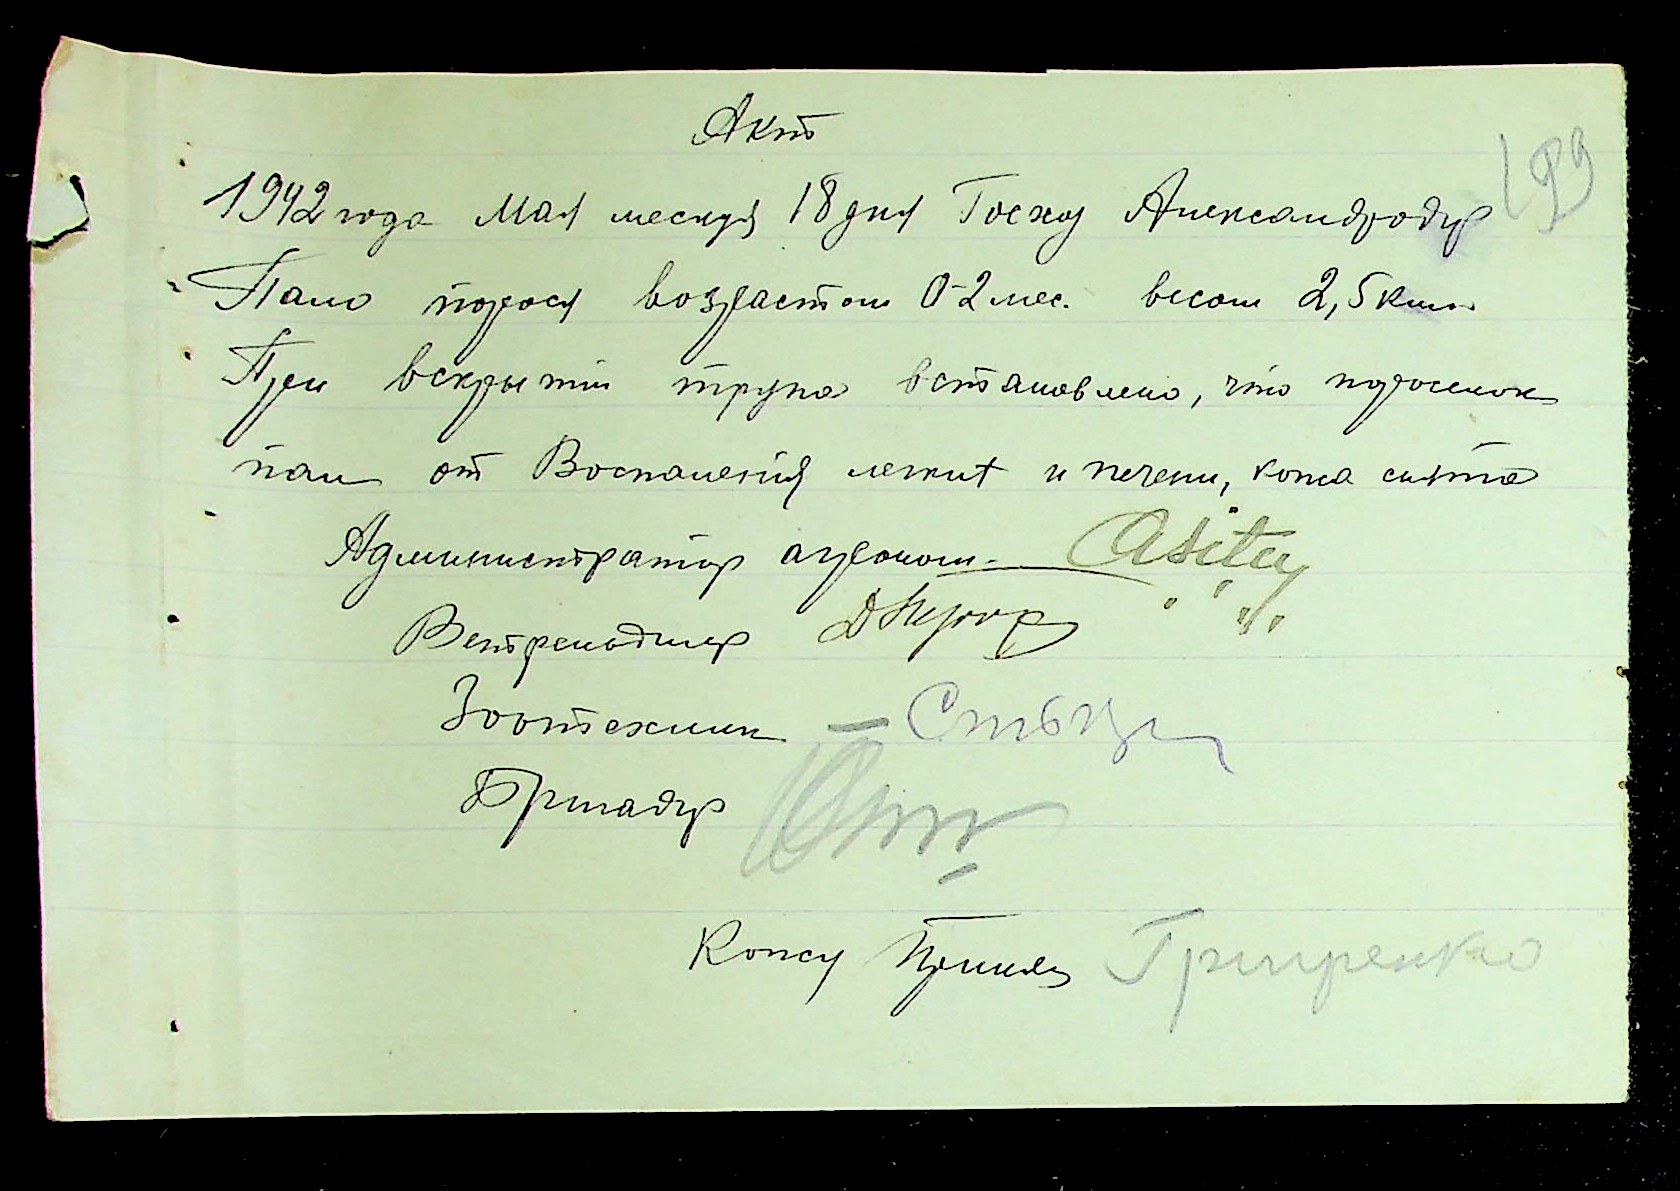 Акт
199
1942 года Мая месяця 18 дня Госхоз Александродар
Пало порося возрастом 0-2 мес. весом 2,5 клгм
При вскрытии трупа встановлено, что поросенок
пал от Воспаления легких и печени, кожа снята
Администратор агроном.
Ветфельдшер
Зоотехник
Бригадир
Кожу Принял Григоренко